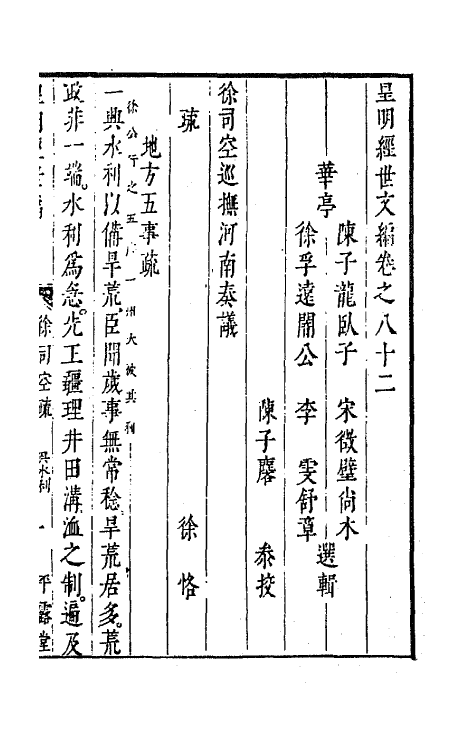 皇明經世文編卷之八十二
陳子龍臥子 宋徵璧尚木
華亭 選輯
徐孚遠闇公 李 雯舒章
陳子廮 叅挍
徐司空巡撫河南奏議
疏 徐恪
地方五事疏
徐公行之五 一州大被其利
一興水利以備旱荒臣聞歲事無常稔旱荒居多荒
政非一端水利爲急先王疆理井田溝洫之制遍及
徐司空疏 興水利 一 平露堂